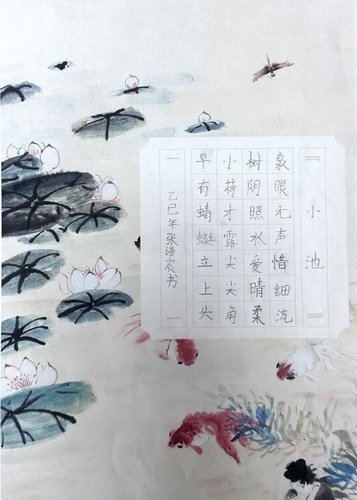 小池
泉眼无声惜细流
树阴照水爱晴柔
小荷才露尖尖角
早有蜻蜓立上头
乙巳年张浩宸书